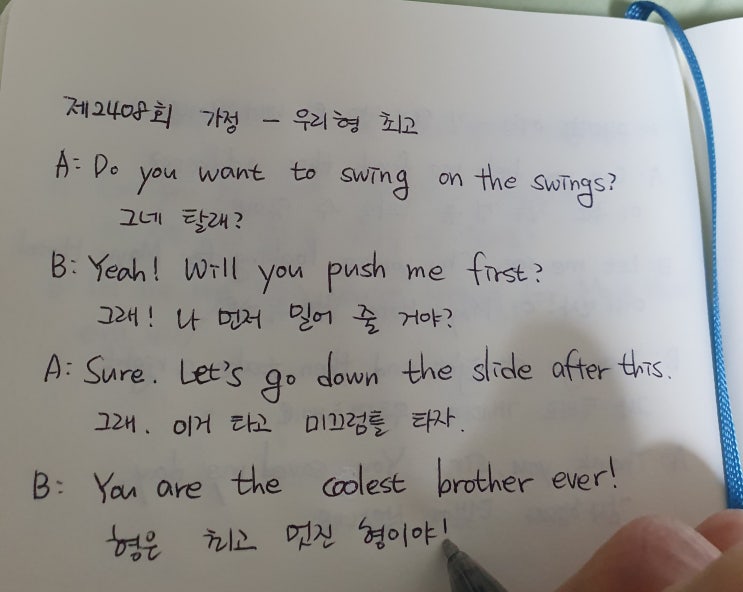 제2408회 가정 - 우리형 최고
A: Do you want to swing on the swings?
그네 탈래?
B: Yeah! Will you push me first?
그래! 나 먼저 밀어 줄 거야?
A: Sure. Let's go down the slide after this.
그래. 이거 타고 미끄럼틀 타자.
B: You are the coolest brother ever!
형은 최고 멋진 형이야!